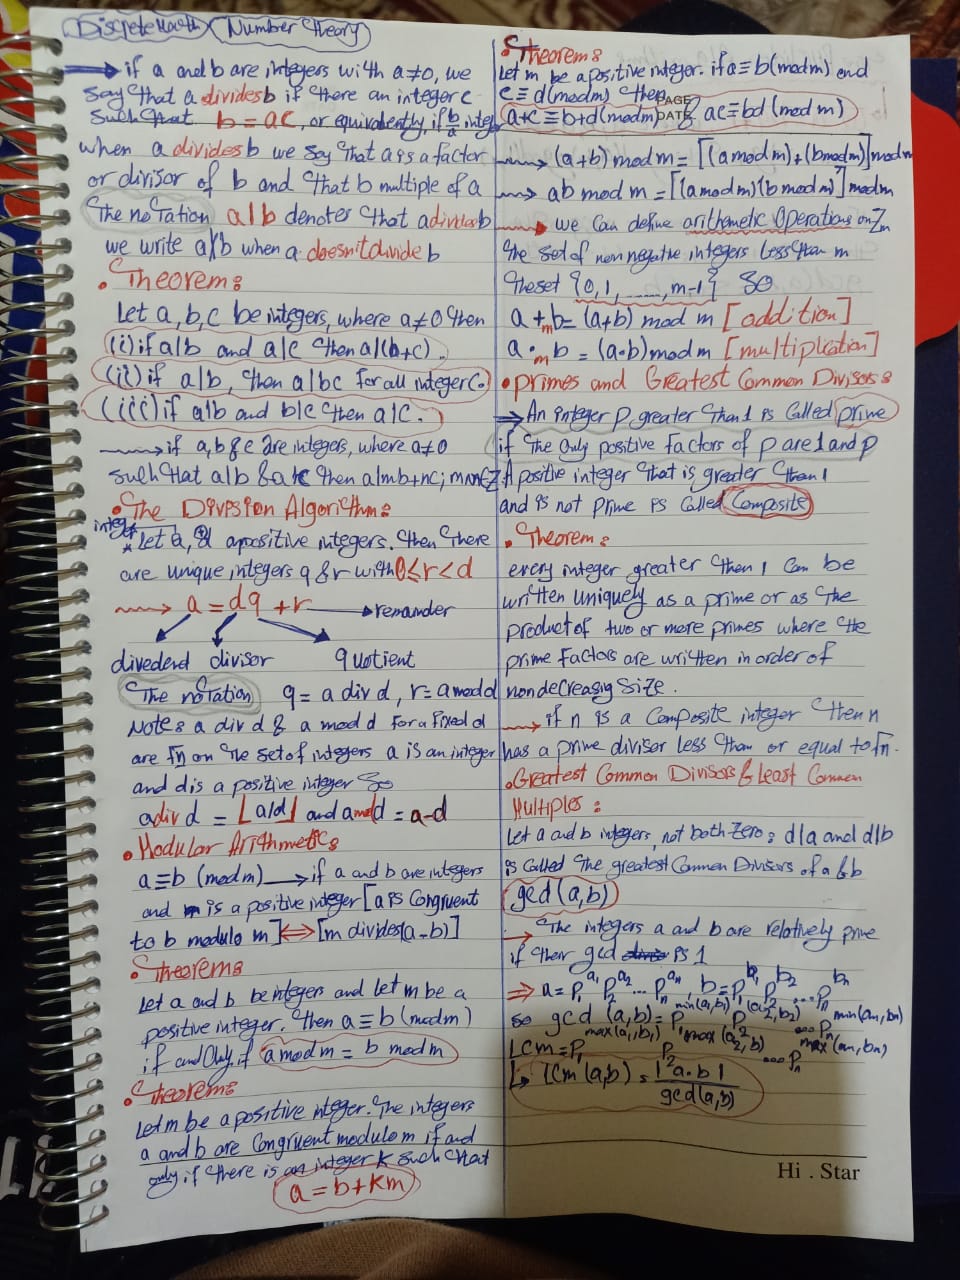 Discrete Math Number theory
if a and b are integers with a≠0, we
say that a divides b if there an integer c
such that b = ac, or equivalently, if b/a integ
when a divides b we say that a is a factor
or divisor of b and that b multiple of a
The notation a|b denotes that a divides b
we write a∤b when a doesn't divide b
• Theorem:
Let a,b,c be integers, where a≠0 then
(i) if a|b and a|c then a|(b+c).
(ii) if a|b, then a|bc for all integer c.
(iii) if a|b and b|c then a|c.
if a,b & c are integers, where a≠0
such that a|b & a|c then a|mb+nc; m,n∈Z
• The Division Algorithm:
integer
* Let a, d a positive integers. then there
are unique integers q & r with 0≤r<d
a = dq + r → remainder
divedend divisor quotient
The notation q = a div d, r = a mod d
Note: a div d & a mod d for a fixed d
are fn on the set of integers a is an integer
and d is a positive integer so
a div d = ⌊a/d⌋ and a mod d = a-d
• Modular Arithmetic:
a≡b (mod m) → if a and b are integers
and m is a positive integer [a is Congruent
to b modulo m] ⇔ [m divides(a-b)]
• Theorem:
Let a and b be integers and let m be a
positive integer. then a ≡ b (mod m)
if and only if a mod m = b mod m
• Theorem:
Let m be a positive integer. The integers
a and b are Congruent modulo m if and
only if there is an integer k such that
a = b + km
• Theorem:
Let m be a positive integer. if a≡b (mod m) and
c ≡ d (mod m) then
PAGE
DATE
a+c ≡ b+d (mod m) & ac≡bd (mod m)
(a+b) mod m = [(a mod m)+(b mod m)] mod m
ab mod m = [(a mod m)(b mod m)] mod m
we can define arithmetic operations on Zm
the set of non negative integers less than m
the set {0,1,......,m-1} so
a +m b = (a+b) mod m [addition]
a ·m b = (a·b) mod m [multiplication]
• primes and Greatest Common Divisors:
An integer p greater than 1 is called prime
if the only positive factors of p are 1 and p
A positive integer that is greater then 1
and is not prime is called Composite
• Theorem:
every integer greater then 1 can be
written uniquely as a prime or as the
product of two or more primes where the
prime factors are written in order of
nondecreasing size.
if n is a Composite integer then n
has a prime divisor less than or equal to √n.
• Greatest Common Divisors & Least Common
Multiples:
Let a and b integers, not both zero: d|a and d|b
is called the greatest Common Divisors of a & b
gcd(a,b)
The integers a and b are relatively prime
if their gcd is 1
⇒ a = p₁^a₁ p₂^a₂ ... pₙ^aₙ, b = p₁^b₁ p₂^b₂ ... pₙ^bₙ
so gcd(a,b) = p₁^min(a₁,b₁) p₂^(a₂,b₂) ... pₙ^min(an,bn)
Lcm = p₁^max(a₁,b₁) p₂^max(a₂,b₂) ... pₙ^max(an,bn)
lcm(a,b) = |a·b| / gcd(a,b)
Hi . Star